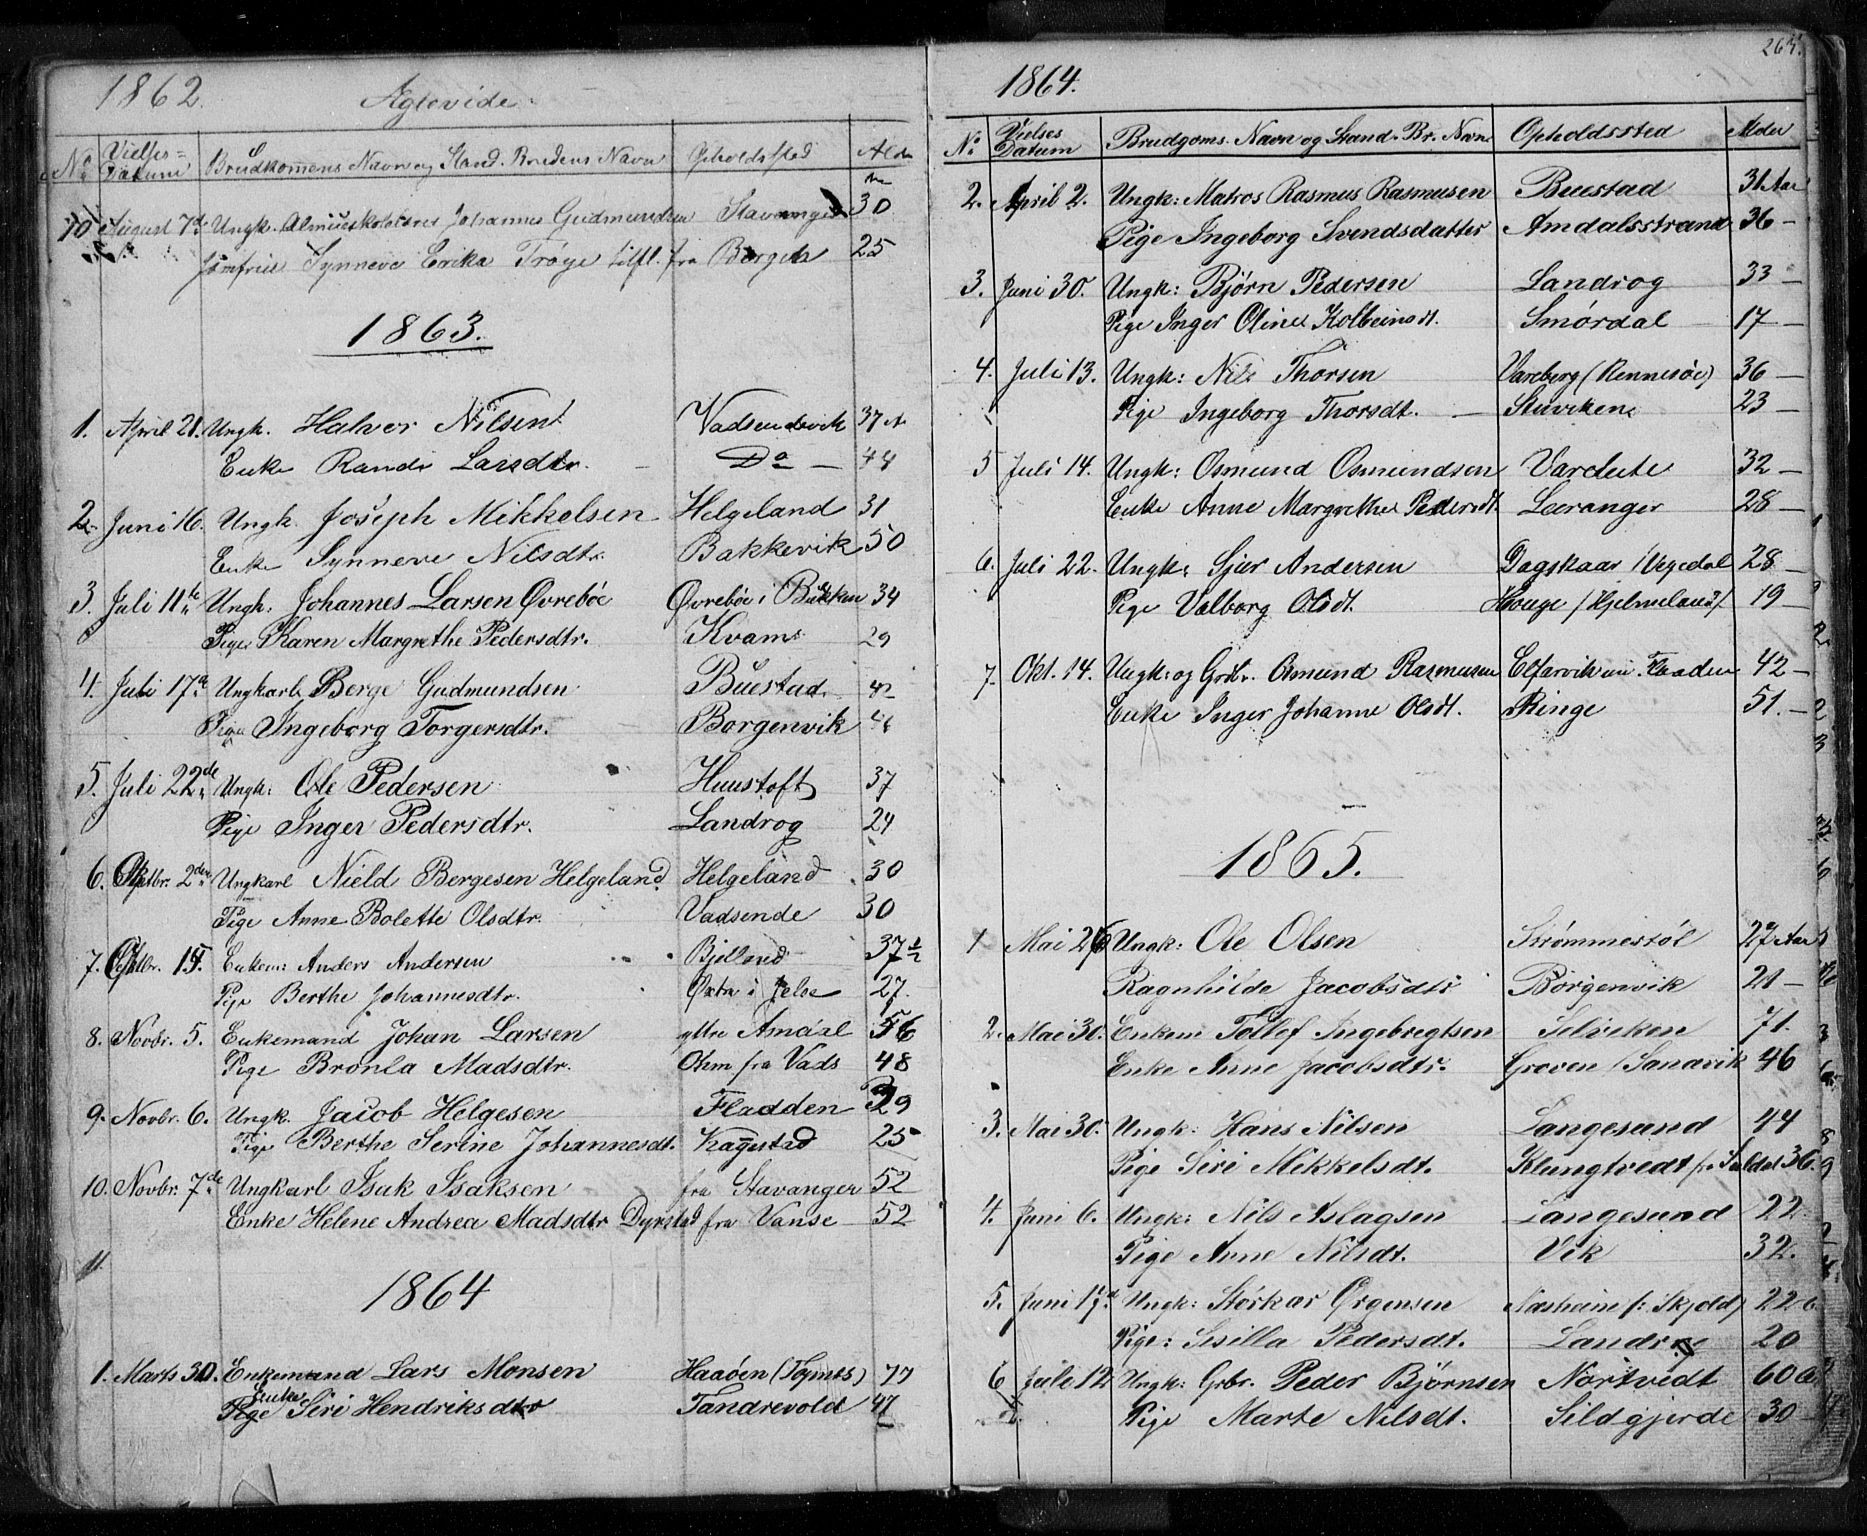 1862.
Ægtevide
No Vielses= Datum Brudkommens Navn og Stand. Brudens Navn Opholdssted Alder
10 August 7de Ungk. Almueskolelærer Johannes Gudmundsen Stavanger 30
Jomfrue Synneve Erika Trøye tilfl. fra Bergen 25
1863.
1. April 21. Ungk. Halvor Nilsen Vadsendvik 37 A
Enke Randi Larsdtr. — Do — 44
2. Juni 16. Ungk. Joseph Mikkelsen Helgeland 31
Enke Synneve Nilsdtr. Bakkevik 50
3. Juli 11te Ungk. Johannes Larsen Øvrebøe Øvrebøe i Bukken 34
Pige Karen Margrethe Pedersdtr. Kvams 29
4. Juli 17de Ungkarl Berge Gudmundsen Buestad. 42
Pige Ingeborg Torgersdtr. Borgenvik
5. Juli 22de Ungk: Ole Pedersen Huustoft 37
Pige Inger Pedersdtr. Landrog 24
6. Oktbr. 2den Ungkarl Nield Bergesen Helgeland Helgeland 30
Pige Anne Bolette Olsdtr. Vadsende 30
7. Oktbr. 15. Enkem: Anders Andersen Bjelland 37 1/2
Pige Berthe Johannesdtr. i Jelse 27.
8. Novbr. 5. Enkemand Johan Larsen yttre Amdal 56
Pige Bronla Madsdtr. fra Vads 48
9. Novbr. 6. Ungk. Jacob Helgesen Fladden 29
Pige Berthe Serine Johannesdt. Kagestad 25
10. Novbr. 7de Ungkarl Isak Isaksen fra Stavanger 52
Enke Helene Andrea Madsdtr Dyrstad fra Vanse 52
11.
1864
1. Marts 30. Enkemand Lars Monsen Haaøen (Tysnes) 77
Enke
Pige Siri Hendriksdtr Tandrevold 47
264.
1864.
No. Vielses Datum Brudgoms. Navn og Stand. Br. Navn Opholdssted Alder
2. April 2. Ungk: Matros Rasmus Rasmusen Buestad 31 Aar
Pige Ingeborg Svendsdatter Amdalsstrand 36 —
3. Juni 30. Ungk: Bjørn Pedersen Landrog 33 —
Pige Inger Oline Kolbeinsdt. Smørdal 17 —
4. Juli 13. Ungk: Nils Thorsen Vareberg (Rennesøe) 36 —
Pige Ingeborg Thorsdt. — Stuviken 23 —
5 Juli 14. Ungk: Osmund Osmundsen 32 —
Enke Anne Margrethe Pedersdt. Leranger 28 —
6. Juli 22. Ungk: Sjur Andersen Dagskaar /Vegedal 28 —
Pige Valborg Olsdt. Houge /Hjelmeland/ 19 —
7. Okt. 14. Ungk: og Grdbr. Osmund Rasmusen Elfarvik nu Fladen 42 —
Enke Inger Johanne Olsdt. Ringe 51. —
1865.
1 Mai 26 Ungk: Ole Olsen Strømmestøl 27 Aar
Ragnhilde Jacobsdtr Borgenvik 21 —
2. Mai 30. Enkem Tollef Ingebregtsen Selviken 71.
Enke Anne Jacobsdtr. Groven /Sandvik 46
3. Mai 30. Ungk: Hans Nilsen Langesund 44
Pige Siri Mikkelsdt. Klungtvedt fr. Suldal 36.
4. Juni 6. Ungk: Nils Aslagsen Langesund 22
Pige Anne Nilsdt. Vik 32.
5. Juni 17de Ungk: Størkar Ørgensen Næsheim (: Skjold) 22
Pige: Sisilla Pedersdt. Landrog 20
6 Juli 12 Ungk: Grbr. Peder Bjørnsen Nortvedt 60
Pige Marte Nilsdt. Sildgjerde 30 —